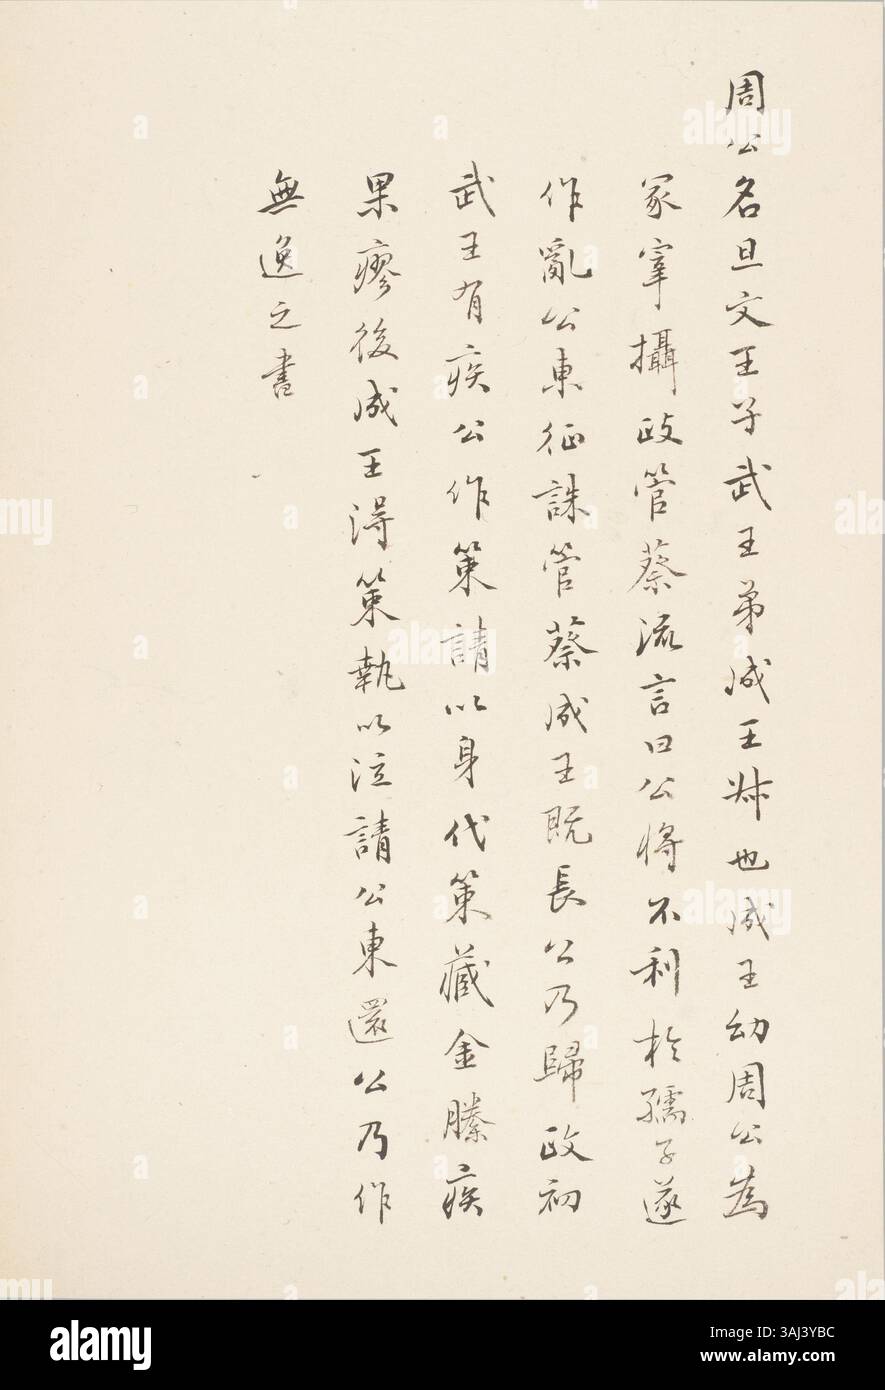 周公名旦文王子武王弟成王叔也成王幼周公為
冢宰攝政管蔡流言曰公將不利於孺子遂
作亂公東征誅管蔡成王既長公乃歸政初
武王有疾公作策請以身代策藏金縢疾
果瘳後成王得策執以泣請公東還公乃作
無逸之書
alamy
Image ID: 3AJ3YBC
www.alamy.com